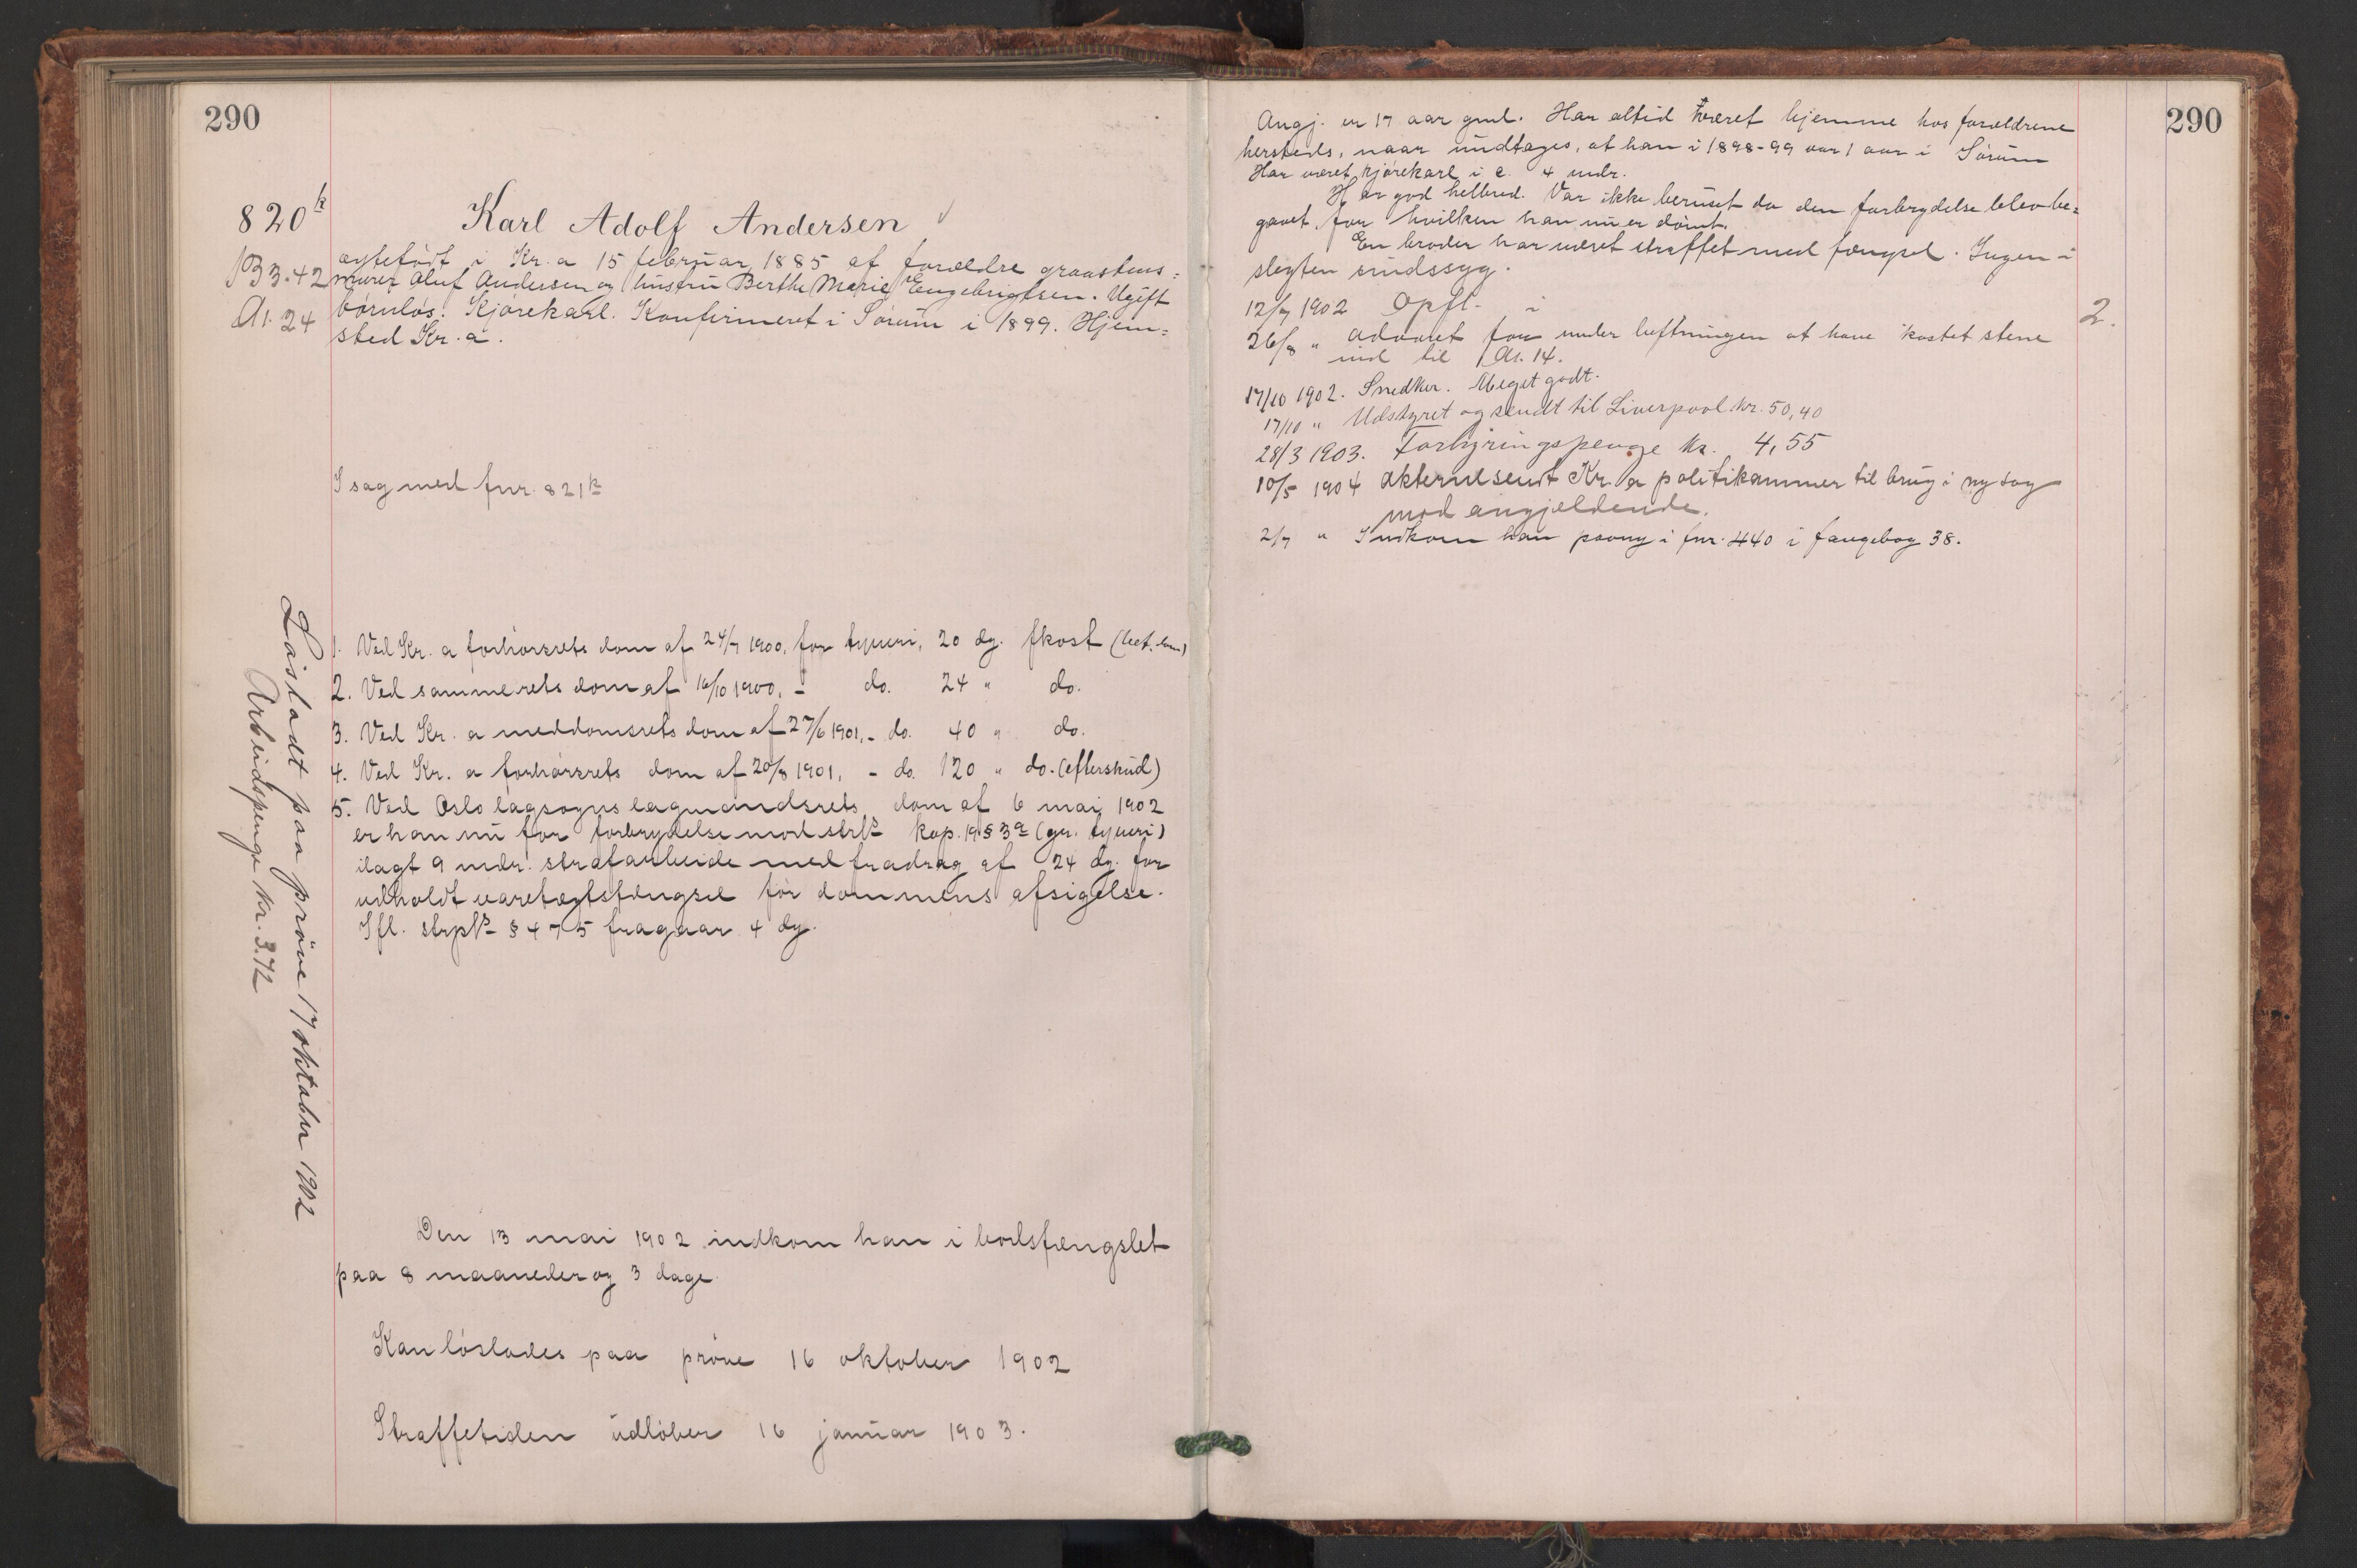 290
820 k
B3.42
A1.24
Karl Adolf Andersen
ægtefödt i Kr.a 15 februar 1885 af forældre graastens-
murer Oluf Andersen og hustru Berthe Marie Engebrigtsen. Ugift
börnlös. Kjörekarl. Konfirmeret i Sörum i 1899. Hjem-
sted Kr.a.
I sag med fnr. 821 k
1. Ved Kr.a forhörsrets dom af 24/7 1900, for tyveri, 20 dg. fkost (bet. dom)
2. Ved sammerets dom af 16/10 1900, - do. 24 " do.
3. Ved Kr.a meddomsrets dom af 27/6 1901, - do. 40 " do.
4. Ved Kr.a forhörsrets dom af 20/8 1901, - do. 120 " do. (efterskud)
5. Ved Oslo lagsogns lagmandsrets dom af 6 mai 1902
er han nu for forbrydelse mod strl. kap. 19 § 3 (gr. tyveri)
ilagt 9 mdr. strafarbeide med fradrag af 24 dg. for
udholdt varetægtsfængsel för dommens afsigelse.
Ifl. strpl. § 475 fragaar 4 dg.
Lösladt paa pröve 17 oktober 1902
Arbeidspenge kr. 3.72
Den 13 mai 1902 indkom han i bodsfængslet
paa 8 maaneder og 3 dage
Kan löslades paa pröve 16 oktober 1902
Straffetiden udlöber 16 januar 1903.
290
Angj. er 17 aar gml. Har altid været hjemme hos forældrene
hersteds, naar undtages, at han i 1898-99 var 1 aar i Sörum
Har været kjörekarl i c. 4 mdr.
Har god helbred. Var ikke beruset da den forbrydelse blev be-
gaaet, for hvilken han nu er dömt.
En broder har været straffet med fængsel. Ingen i
slegten sindssyg.
12/7 1902 Opfl. i
2.
26/8 " advaret for under luftningen at have kastet stene
ind til A1.14.
17/10 1902. Snedker. Meget godt.
17/10 " Udstyret og sendt til Liverpool kr. 50,40
28/3 1903. Forhyringspenge kr. 4,55
10/5 1904 akterne sendt Kr.a politikammer til brug i ny sag
mod angjældende.
2/7 " Indkom han paany i fnr. 440 i fangebog 38.